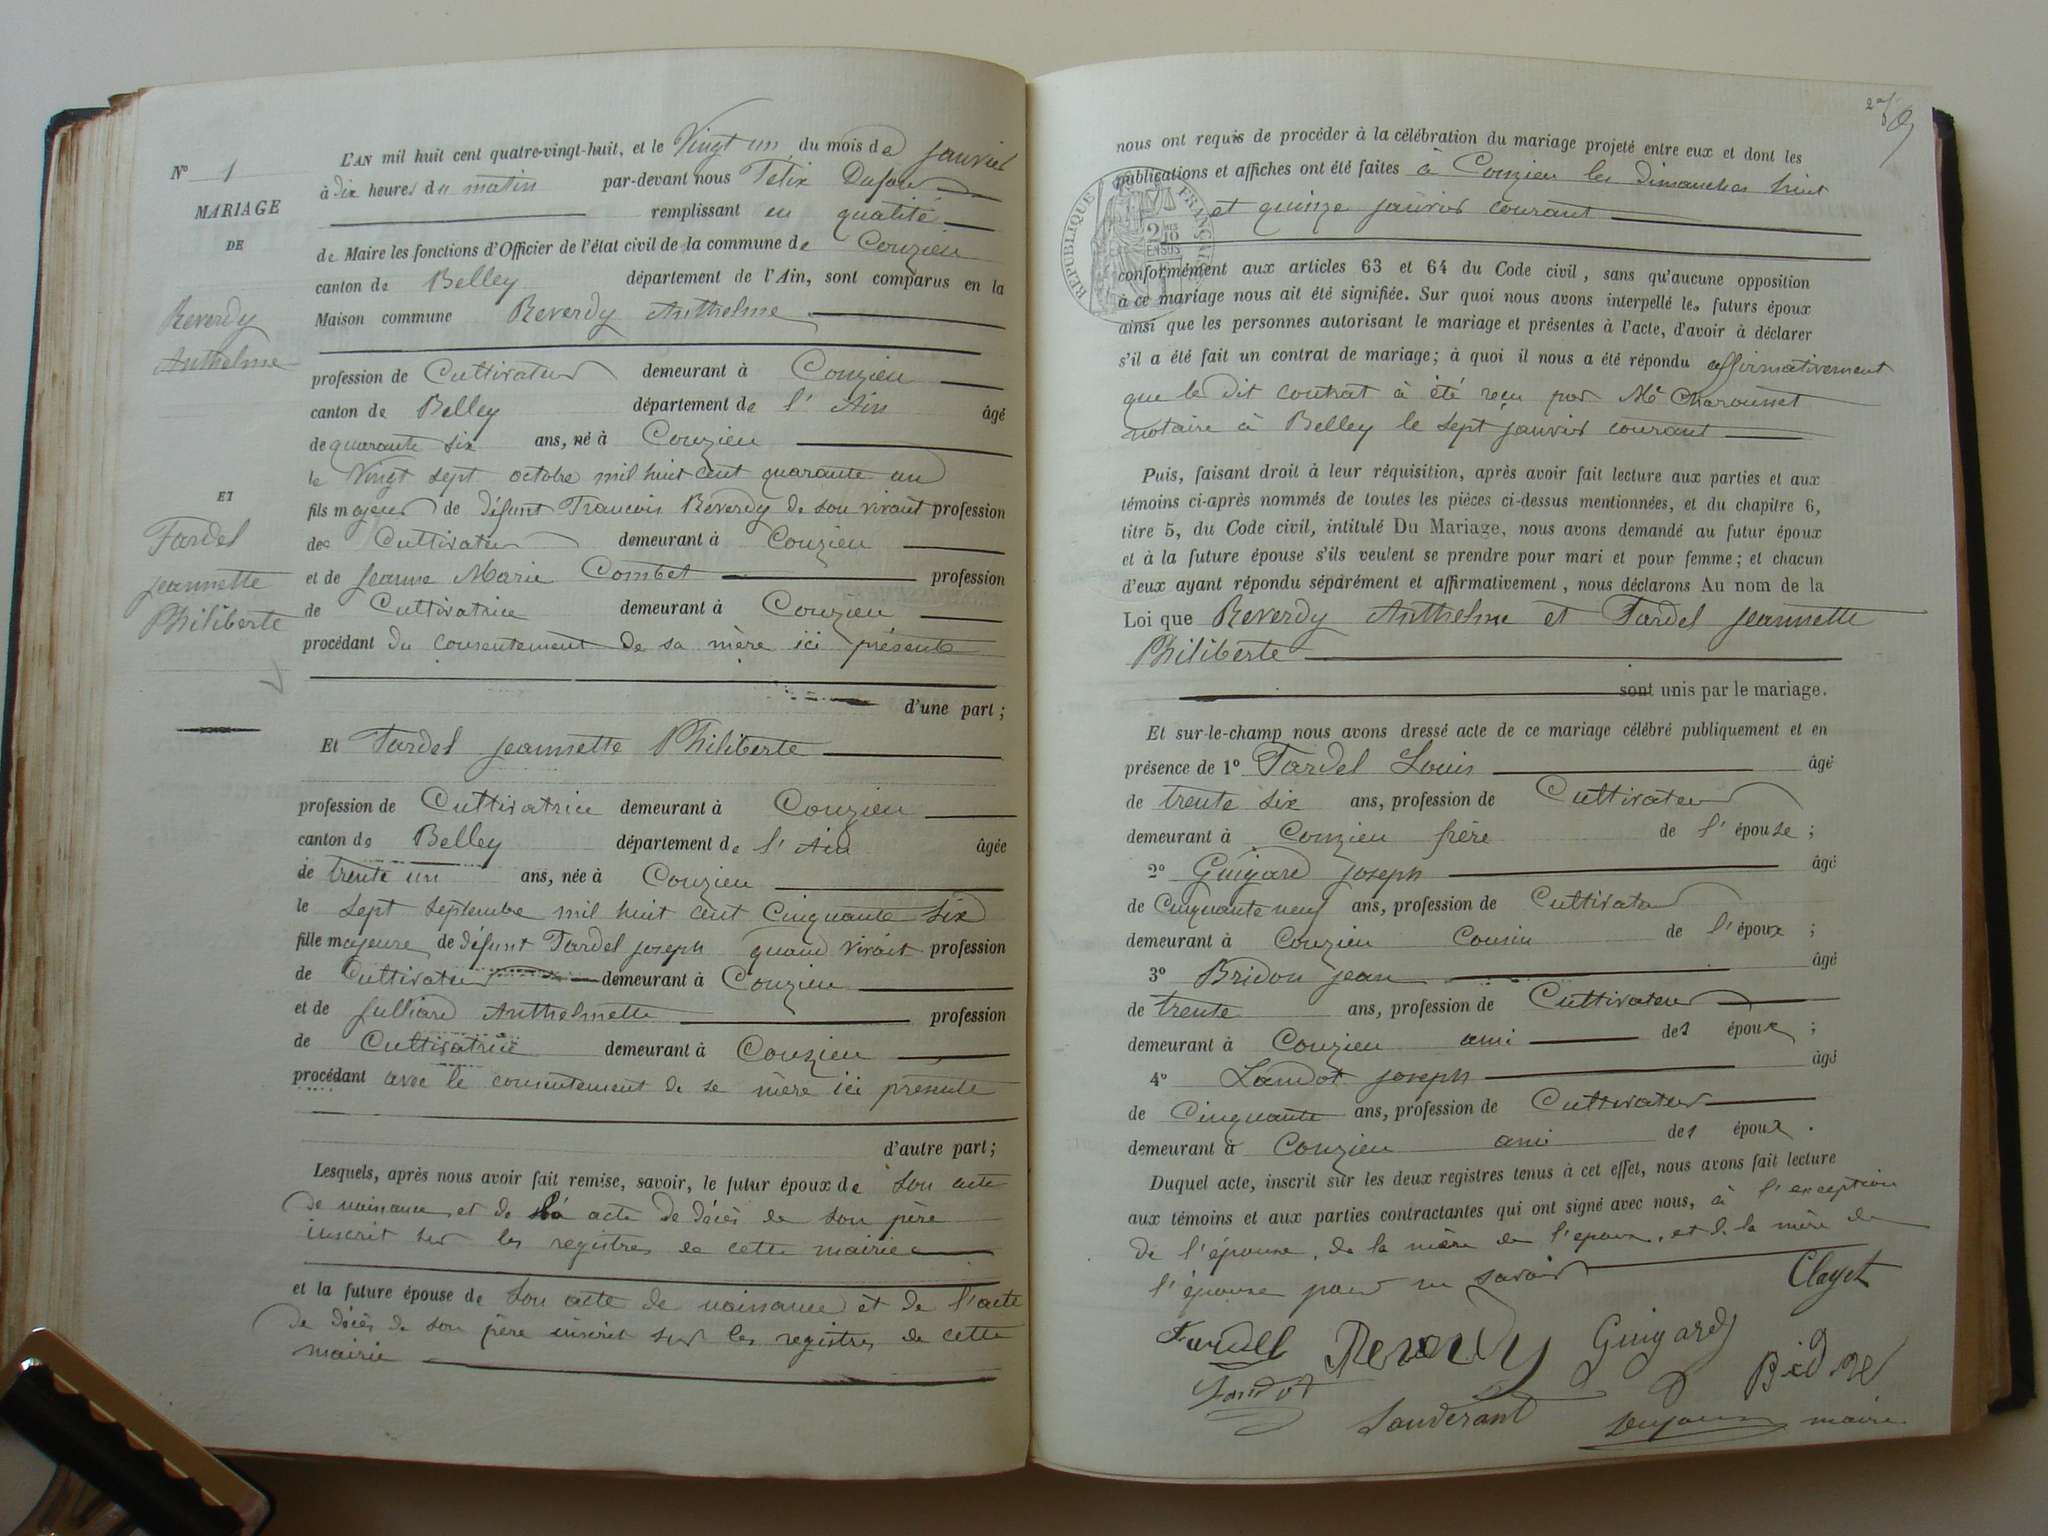 L'AN mil huit cent quatre-vingt-huit, et le Vingt un du mois de janvier
N° 1
à dix heures du matin par-devant nous Félix Dufour
MARIAGE
remplissant en qualité
DE
de Maire les fonctions d'Officier de l'état civil de la commune de Couzieu
canton de Belley département de l'Ain, sont comparus en la
Reverdy
Maison commune Reverdy Anthelme
Anthelme
profession de Cultivateur demeurant à Couzieu
canton de Belley département de l'Ain âgé
de quarante six ans, né à Couzieu
le Vingt sept octobre mil huit cent quarante un
ET
fils majeur de défunt Francois Reverdy de son vivant profession
Tardel
de Cultivateur demeurant à Couzieu
Jeannette
et de Jeanne Marie Combet profession
Philiberte
de Cultivatrice demeurant à Couzieu
procédant du consentement de sa mère ici présente
d'une part;
Et Tardel Jeannette Philiberte
profession de Cultivatrice demeurant à Couzieu
canton de Belley département de l'Ain âgée
de trente un ans, née à Couzieu
le sept septembre mil huit cent cinquante six
fille majeure de défunt Tardel joseph quand vivait profession
de Cultivateur demeurant à Couzieu
et de Julliard Anthelmette profession
de Cultivatrice demeurant à Couzieu
procédant avec le consentement de se mère ici présente
d'autre part;
Lesquels, après nous avoir fait remise, savoir, le futur époux de son acte
de naissance et de acte de décès de son père
inscrit sur les registres de cette mairie
et la future épouse de son acte de naissance et de l'acte
de décès de son père inscrit sur les registres de cette
mairie
nous ont requis de procéder à la célébration du mariage projeté entre eux et dont les
publications et affiches ont été faites à Couzieu les dimanches huit
et quinze janvier courant
RÉPUBLIQUE FRANÇAISE
conformément aux articles 63 et 64 du Code civil, sans qu'aucune opposition
à ce mariage nous ait été signifiée. Sur quoi nous avons interpellé les futurs époux
ainsi que les personnes autorisant le mariage et présentes à l'acte, d'avoir à déclarer
s'il a été fait un contrat de mariage; à quoi il nous a été répondu affirmativement
que le dit contrat à été reçu par Me Charousset
notaire à Belley le sept janvier courant
Puis, faisant droit à leur réquisition, après avoir fait lecture aux parties et aux
témoins ci-après nommés de toutes les pièces ci-dessus mentionnées, et du chapitre 6,
titre 5, du Code civil, intitulé Du Mariage, nous avons demandé au futur époux
et à la future épouse s'ils veulent se prendre pour mari et pour femme; et chacun
d'eux ayant répondu séparément et affirmativement, nous déclarons Au nom de la
Loi que Reverdy Anthelme et Tardel Jeannette
Philiberte
sont unis par le mariage.
Et sur-le-champ nous avons dressé acte de ce mariage célébré publiquement et en
présence de 1° Tardel Louis âgé
de trente six ans, profession de Cultivateur
demeurant à Couzieu frère de l'épouse;
2° Guigard joseph âgé
de Cinquante neuf ans, profession de Cultivateur
demeurant à Couzieu Cousin de l'époux;
3° Bridon jean âgé
de trente ans, profession de Cultivateur
demeurant à Couzieu ami des époux;
4° Landot joseph âgé
de Cinquante ans, profession de Cultivateur
demeurant à Couzieu ami des époux.
Duquel acte, inscrit sur les deux registres tenus à cet effet, nous avons fait lecture
aux témoins et aux parties contractantes qui ont signé avec nous, à l'exception
de l'épouse, de la mère de l'époux, et de la mère de
l'épouse pour ne savoir
Clayet
Tardel Reverdy Guigard
Landot Bridon
Landerant Dufour maire